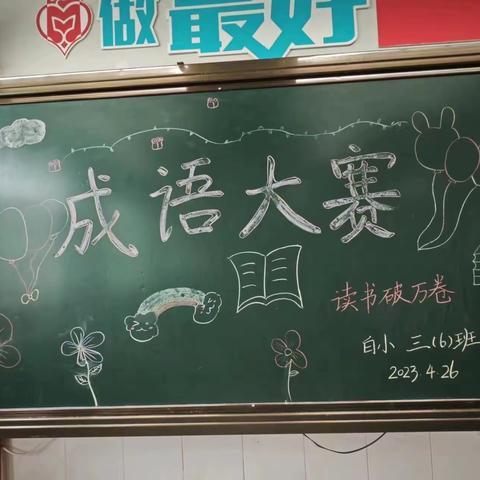 做最好
成语大赛
读书破万卷
白小 三(6)班
2023.4.26